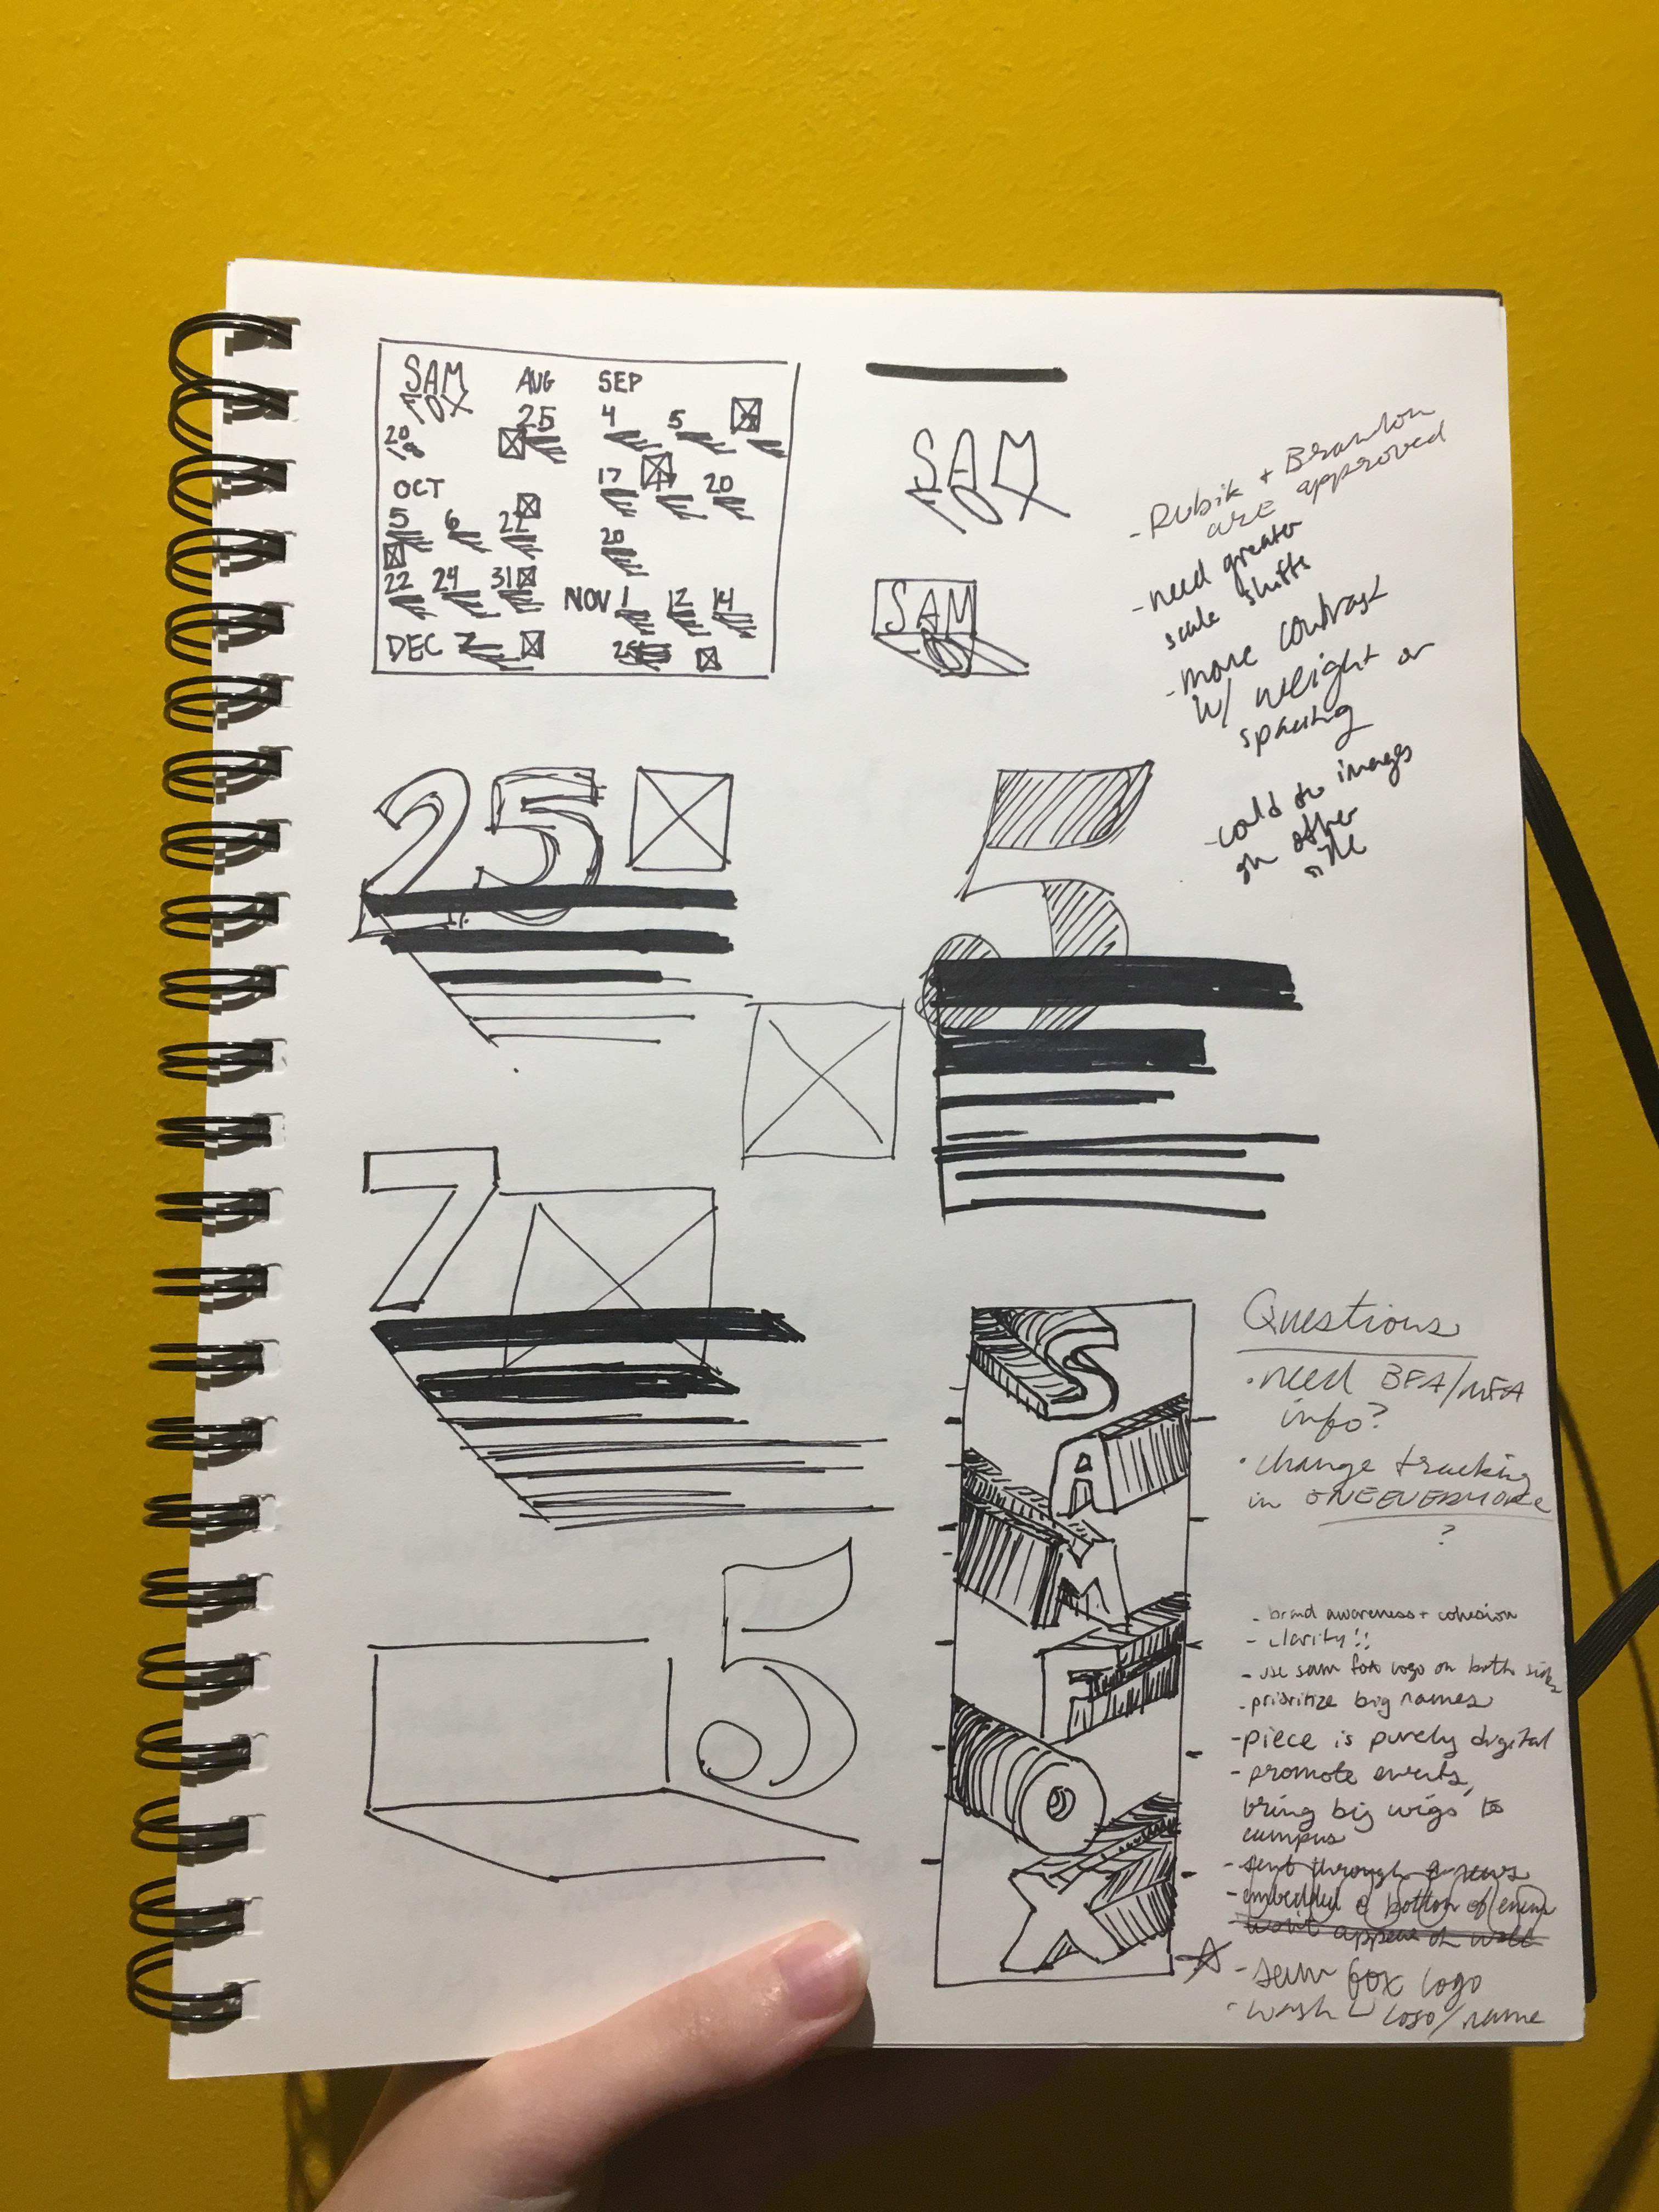 SAM
FOX
20
18
AUG
25
SEP
4 5
17 20
20
OCT
5 6 22
22 24 31
NOV 1 12 14
25
DEC 7
SAM
FOX
SAM
FOX
- Rubik + Brandon
are approved
- need greater
scale shifts
- more contrast
w/ weight or
spacing
- could do images
on other
side
25
5
7
5
S
A
M
F
O
X
Questions
· need BFA/MFA
info?
· change tracking
in ONEEVERMORE
?
- brand awareness + cohesion
- clarity!!
- use sam fox logo on both sides
- prioritize big names
- piece is purely digital
- promote events,
bring big wigs to
campus
- sent through
- embedded @ bottom of email
- won't appear on wall
- sam fox logo
- wash U logo/name